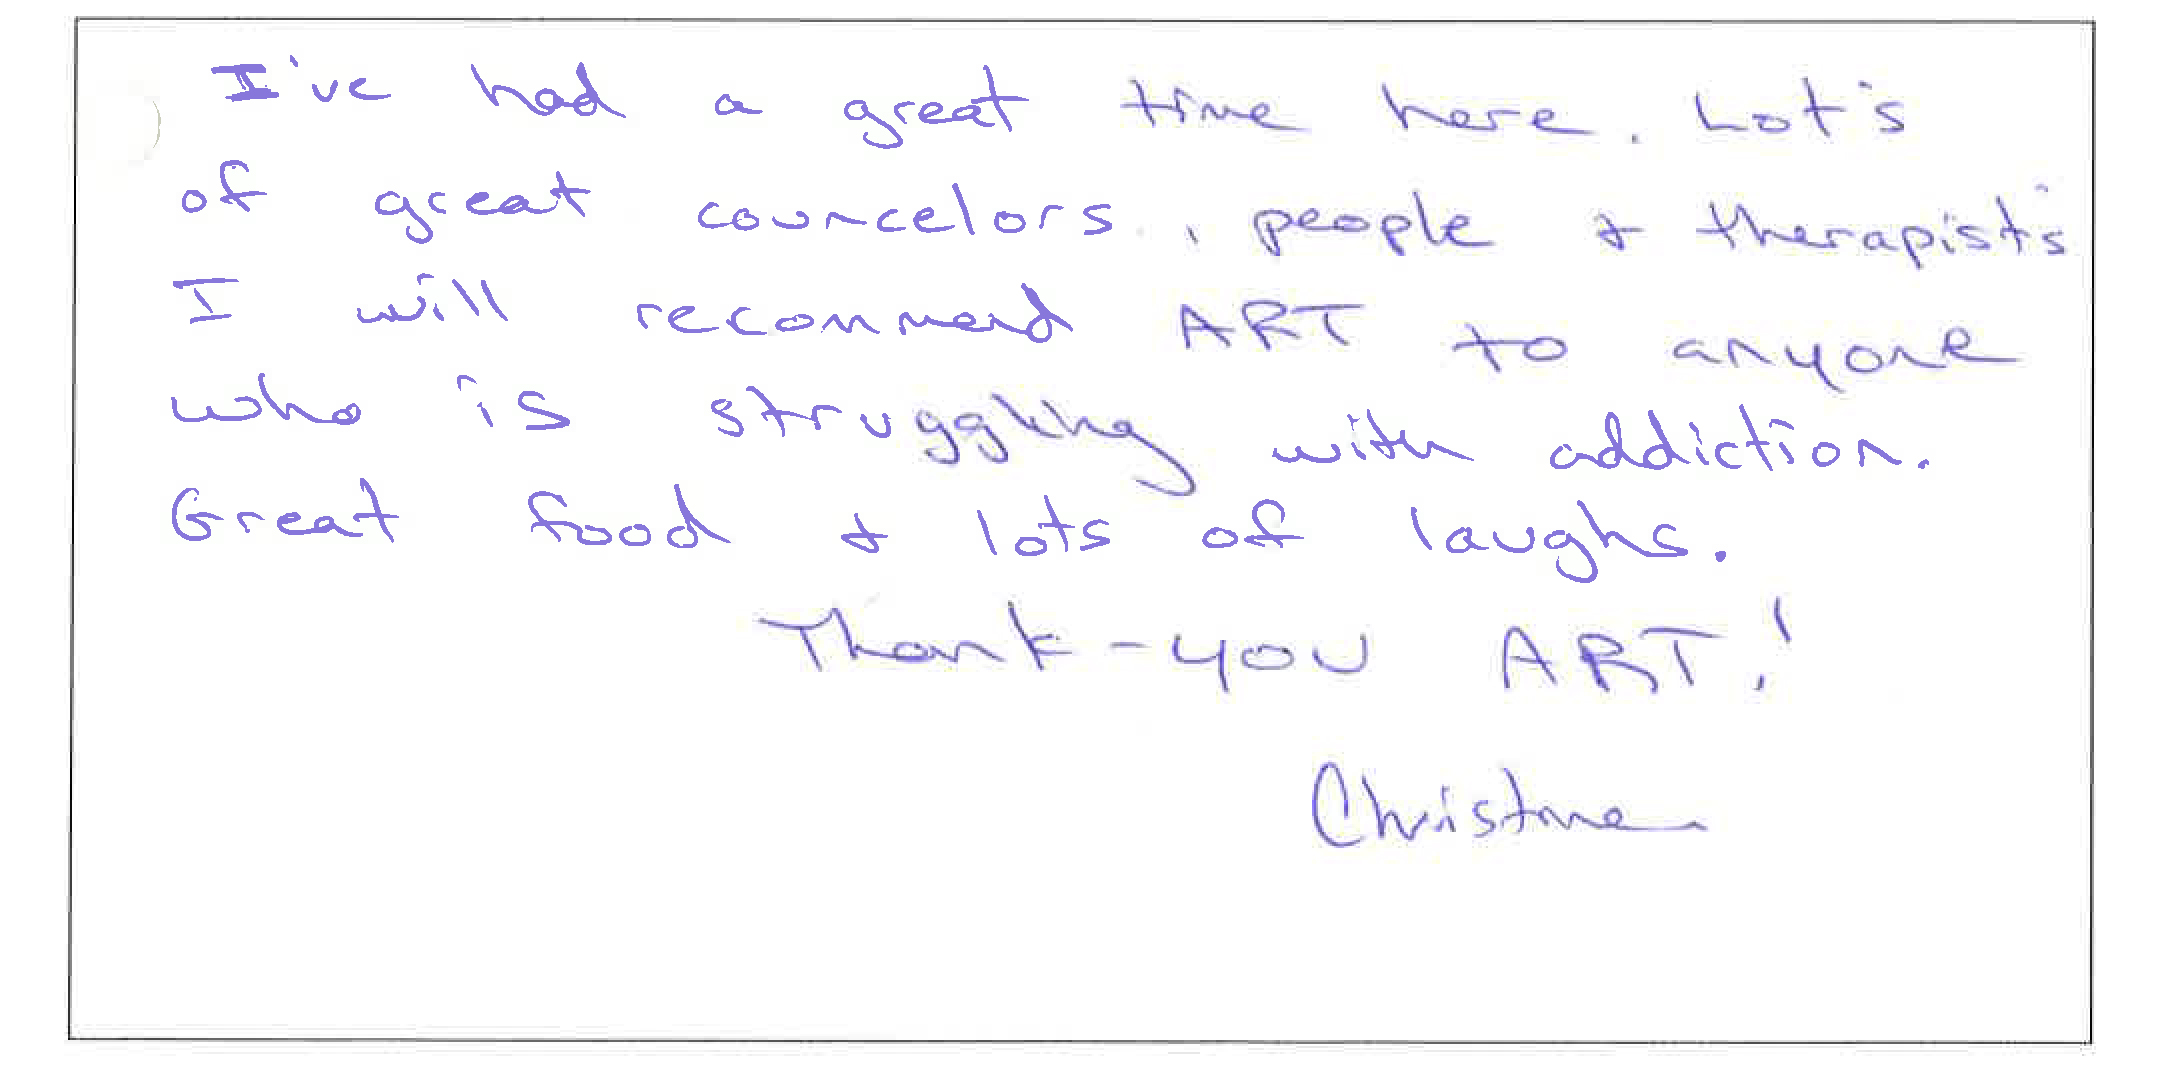 I've had a great time here. Lot's
of great councelors, people & therapist's
I will recommend ART to anyone
who is struggling with addiction.
Great food & lots of laughs.
Thank-you ART!
Christine